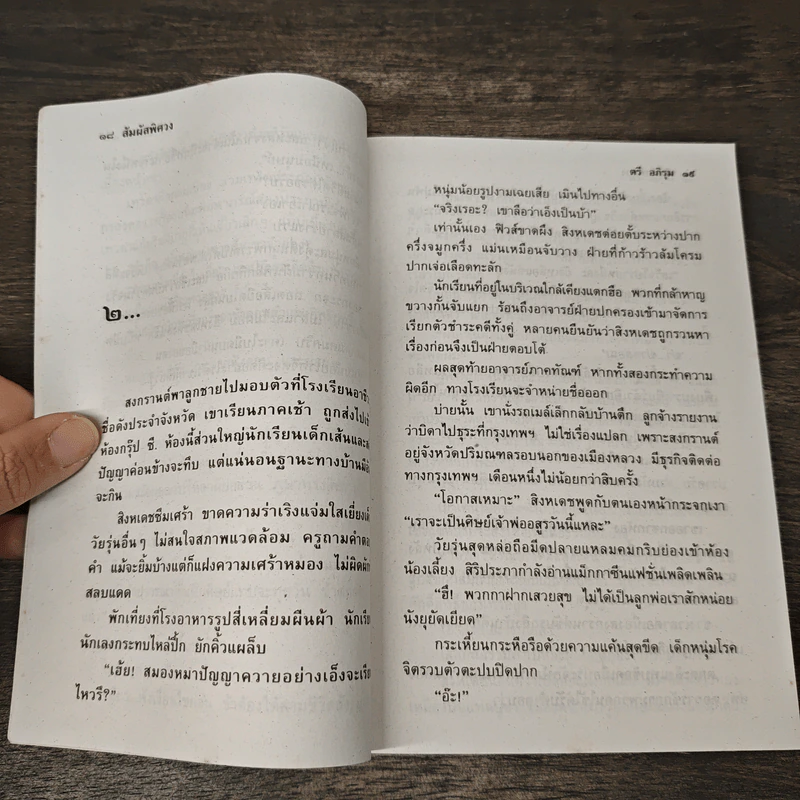 ๑๘ สัมผัสพิศวง
๒...
สงกรานต์พาลูกชายไปมอบตัวที่โรงเรียนอาชี
ชื่อดังประจำจังหวัด เขาเรียนภาคเช้า ถูกส่งไปเข้
ห้องกรุ๊ป ซี. ห้องนี้ส่วนใหญ่นักเรียนเด็กเส้นและส
ปัญญาค่อนข้างจะทึบ แต่แน่นอนฐานะทางบ้านมีอั
จะกิน
สิงหเดชซึมเศร้า ขาดความร่าเริงแจ่มใสเยี่ยงเด็
วัยรุ่นอื่นๆ ไม่สนใจสภาพแวดล้อม ครูถามคำตอ
คำ แม้จะยิ้มบ้างแต่ก็แฝงความเศร้าหมอง ไม่ผิดผัก
สลบแดด
พักเที่ยงที่โรงอาหารรูปสี่เหลี่ยมผืนผ้า นักเรีย
นักเลงกระทบไหล่ปึ้ก ยักคิ้วแผล็บ
“เฮ้ย! สมองหมาปัญญาควายอย่างเอ็งจะเรีย
ไหวรึ?”
ตรี อภิรุม ๑๙
หนุ่มน้อยรูปงามเฉยเสีย เมินไปทางอื่น
“จริงเรอะ? เขาลือว่าเอ็งเป็นบ้า”
เท่านั้นเอง ฟิวส์ขาดผึง สิงหเดชต่อยตั้บระหว่างปาก
ครึ่งจมูกครึ่ง แม่นเหมือนจับวาง ฝ่ายที่ก้าวร้าวล้มโครม
ปากเจ่อเลือดทะลัก
นักเรียนที่อยู่ในบริเวณใกล้เคียงแตกฮือ พวกที่กล้าหาญ
ขวางกั้นจับแยก ร้อนถึงอาจารย์ฝ่ายปกครองเข้ามาจัดการ
เรียกตัวชำระคดีทั้งคู่ หลายคนยืนยันว่าสิงหเดชถูกรวนหา
เรื่องก่อนจึงเป็นฝ่ายตอบโต้
ผลสุดท้ายอาจารย์ภาคทัณฑ์ หากทั้งสองกระทำความ
ผิดอีก ทางโรงเรียนจะจำหน่ายชื่อออก
บ่ายนั้น เขานั่งรถเมล์เล็กกลับบ้านตึก ลูกจ้างรายงาน
ว่าบิดาไปธุระที่กรุงเทพฯ ไม่ใช่เรื่องแปลก เพราะสงกรานต์
อยู่จังหวัดปริมณฑลรอบนอกของเมืองหลวง มีธุรกิจติดต่อ
ทางกรุงเทพฯ เดือนหนึ่งไม่น้อยกว่าสิบครั้ง
“โอกาสเหมาะ” สิงหเดชพูดกับตนเองหน้ากระจกเงา
“เราจะเป็นศิษย์เจ้าพ่ออสูรวันนี้แหละ”
วัยรุ่นสุดหล่อถือมีดปลายแหลมคมกริบย่องเข้าห้อง
น้องเลี้ยง สิริประภากำลังอ่านแม็กกาซีนแฟชั่นเพลิดเพลิน
“ฮึ! พวกกาฝากเสวยสุข ไม่ได้เป็นลูกพ่อเราสักหน่อย
นังยุยัดเยียด”
กระเหี้ยนกระหือรือด้วยความแค้นสุดขีด เด็กหนุ่มโรค
จิตรวบตัวตะปบปิดปาก
“อ๊ะ!”